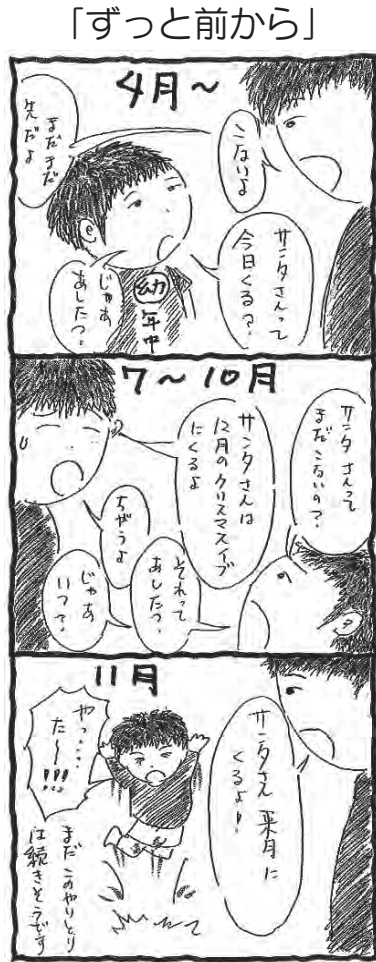 「ずっと前から」
4月〜
サンタさんって
今日くる?
こないよ
じゃあ
あしたっ?
まだまだ
先だよ
幼
年中
7〜10月
サンタさんって
まだこないの?
サンタさんは
12月のクリスマスイブ
にくるよ
それって
あしたっ?
ちがうよ
じゃあ
いつ?
11月
サンタさん来月に
くるよ!
やっ・・・・
た〜!!!
まだこのやりとり
は続きそうです